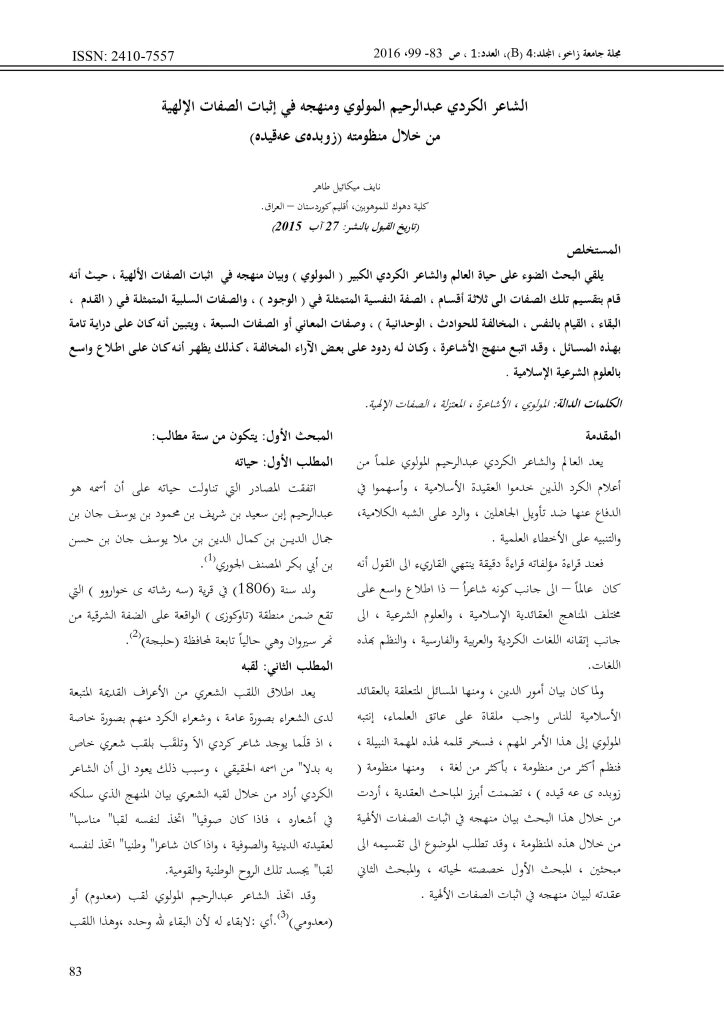 مجلة جامعة زاخو، المجلد:4 (B)، العدد:1 ، ص 83- 99، 2016
ISSN: 2410-7557
الشاعر الكردي عبدالرحيم المولوي ومنهجه في إثبات الصفات الإلهية
من خلال منظومته (زوبدەی عەقیدە)
نايف ميكائيل طاهر
كلية دهوك للموهوبين، أقليم كوردستان – العراق.
(تاريخ القبول بالنشر: 27 آب 2015)
المستخلص
يلقي البحث الضوء على حياة العالم والشاعر الكردي الكبير ( المولوي ) وبيان منهجه في اثبات الصفات الألهية ، حيث أنه
قام بتقسيم تلك الصفات الى ثلاثة أقسام ، الصفة النفسية المتمثلة في ( الوجود ) ، والصفات السلبية المتمثلة في ( القدم ،
البقاء ، القيام بالنفس ، المخالفة للحوادث ، الوحدانية ) ، وصفات المعاني أو الصفات السبعة ، ويتبين أنه كان على دراية تامة
بهذه المسائل ، وقد اتبع منهج الأشاعرة ، وكان له ردود على بعض الآراء المخالفة ، كذلك يظهر أنه كان على اطلاع واسع
بالعلوم الشرعية الإسلامية .
الكلمات الدالة: المولوي ، الأشاعرة ، المعتزلة ، الصفات الإلهية.
المقدمة
يعد العالم والشاعر الكردي عبدالرحيم المولوي علماً من
أعلام الكرد الذين خدموا العقيدة الأسلامية ، وأسهموا في
الدفاع عنها ضد تأويل الجاهلين ، والرد على الشبه الكلامية،
والتنبيه على الأخطاء العلمية .
فعند قراءة مؤلفاته قراءةً دقيقة ينتهي القاريء الى القول أنه
كان عالماً – الى جانب كونه شاعراً – ذا اطلاع واسع على
مختلف المناهج العقائدية الإسلامية ، والعلوم الشرعية ، الى
جانب إتقانه اللغات الكردية والعربية والفارسية ، والنظم بهذه
اللغات.
ولما كان بيان أمور الدين ، ومنها المسائل المتعلقة بالعقائد
الأسلامية للناس واجب ملقاة على عاتق العلماء، إنتبه
المولوي إلى هذا الأمر المهم ، فسخر قلمه لهذه المهمة النبيلة ،
فنظم أكثر من منظومة ، بأكثر من لغة ، ومنها منظومة (
زوبده ى عه قيده ) ، تضمنت أبرز المباحث العقدية ، أردت
من خلال هذا البحث بيان منهجه في اثبات الصفات الألهية
من خلال هذه المنظومة ، وقد تطلب الموضوع الى تقسيمه الى
مبحثين ، المبحث الأول خصصته لحياته ، والمبحث الثاني
عقدته لبيان منهجه في اثبات الصفات الألهية .
المبحث الأول: يتكون من ستة مطالب:
المطلب الأول: حياته
اتفقت المصادر التي تناولت حياته على أن أسمه هو
عبدالرحيم إبن سعيد بن شريف بن محمود بن يوسف جان بن
جمال الدين بن كمال الدين بن ملا يوسف جان بن حسن
بن أبي بكر المصنف الجوري(1).
ولد سنة (1806) في قرية (سه رشاته ى خواروو ) التي
تقع ضمن منطقة (تاوكوزى ) الواقعة على الضفة الشرقية من
نهر سيروان وهي حالياً تابعة لمحافظة (حلبجة)(2).
المطلب الثاني: لقبه
يعد اطلاق اللقب الشعري من الأعراف القديمة المتبعة
لدى الشعراء بصورة عامة ، وشعراء الكرد منهم بصورة خاصة
، اذ قلّما يوجد شاعر كردي الاّ وتلقّب بلقب شعري خاص
به بدلا" من اسمه الحقيقي ، وسبب ذلك يعود الى أن الشاعر
الكردي أراد من خلال لقبه الشعري بيان المنهج الذي سلكه
في أشعاره ، فاذا كان صوفيا" اتخذ لنفسه لقبا" مناسبا"
لعقيدته الدينية والصوفية ، واذا كان شاعرا" وطنيا" اتخذ لنفسه
لقبا" يجسد تلك الروح الوطنية والقومية.
وقد اتخذ الشاعر عبدالرحيم المولوي لقب (معدوم) أو
(معدومي)(3).أي :لابقاء له لأن البقاء لله وحده ،وهذا اللقب
83